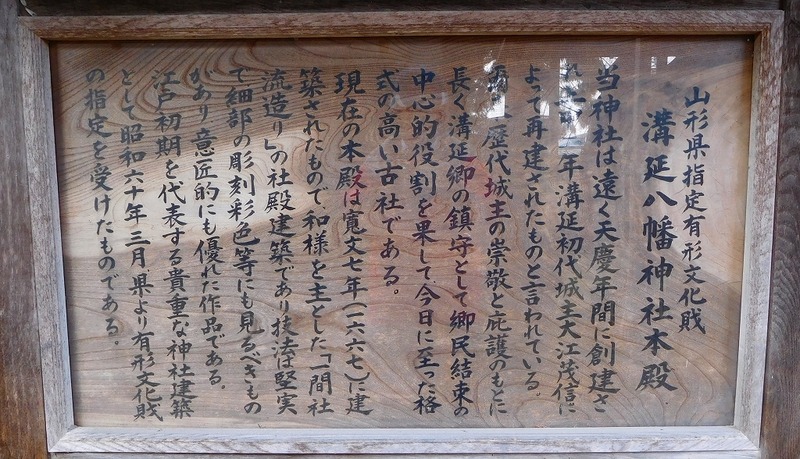 山形県指定有形文化財
溝延八幡神社本殿
当神社は遠く天慶年間に創建さ
れ 年溝延初代城主大江茂信に
よって再建されたものと言われている。
歴代城主の崇敬と庇護のもとに
長く溝延郷の鎮守として郷民結束の
中心的役割を果して今日に至った格
式の高い古社である。
現在の本殿は寛文七年(一六六七)に建
築されたもので和様を主とした「一間社
流造り」の社殿建築であり技法は堅実
で細部の彫刻彩色等にも見るべきもの
があり意匠的にも優れた作品である。
江戸初期を代表する貴重な神社建築
として昭和六十年三月県より有形文化財
の指定を受けたものである。